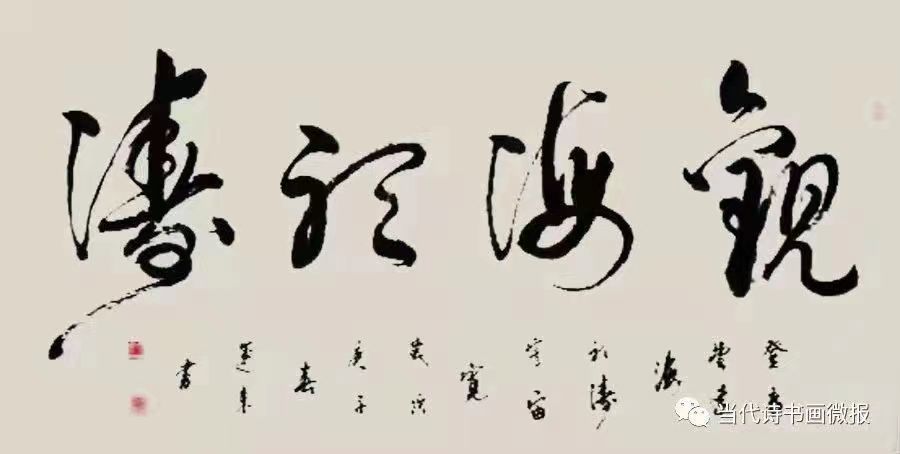 觀海聽濤
登高
望遠
海
聽濤
宇宙
寬
歲次
庚子
春
書
当代诗书画微报